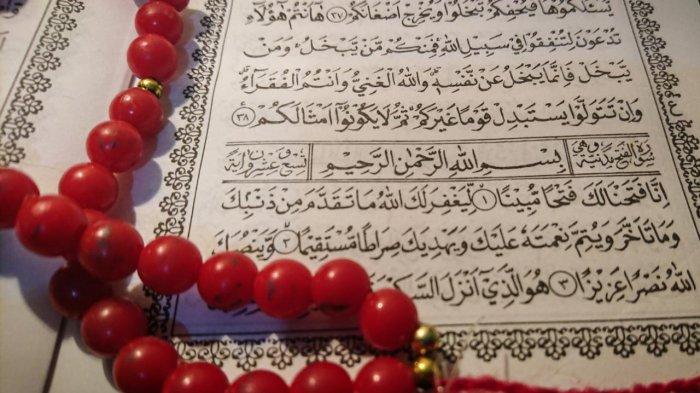 يَسْـَٔلْكُمُوهَا فَيُحْفِكُمْ تَبْخَلُوا وَيُخْرِجْ اَضْغَانَكُمْ ﴿٣٧﴾ هَٓا اَنْتُمْ هٰٓؤُلَٓاءِ
تُدْعَوْنَ لِتُنْفِقُوا فِي سَبِيلِ اللّٰهِ فَمِنْكُمْ مَنْ يَبْخَلُ وَمَنْ
يَبْخَلْ فَاِنَّمَا يَبْخَلُ عَنْ نَفْسِهِ وَاللّٰهُ الْغَنِيُّ وَاَنْتُمُ الْفُقَرَٓاءُ
وَاِنْ تَتَوَلَّوْا يَسْتَبْدِلْ قَوْمًا غَيْرَكُمْ ثُمَّ لَا يَكُونُٓوا اَمْثَالَكُمْ ﴿٣٨﴾
سورة الفتح مدنية وهي بِسْمِ اللّٰهِ الرَّحْمٰنِ الرَّحِيمِ تسع وعشرون اية
اِنَّا فَتَحْنَا لَكَ فَتْحًا مُبِينًا ﴿١﴾ لِيَغْفِرَ لَكَ اللّٰهُ مَا تَقَدَّمَ مِنْ ذَنْبِكَ
وَمَا تَاَخَّرَ وَيُتِمَّ نِعْمَتَهُ عَلَيْكَ وَيَهْدِيَكَ صِرَاطًا مُسْتَقِيمًا ﴿٢﴾ وَيَنْصُرَكَ
اللّٰهُ نَصْرًا عَزِيزًا ﴿٣﴾ هُوَ الَّذِٓي اَنْزَلَ